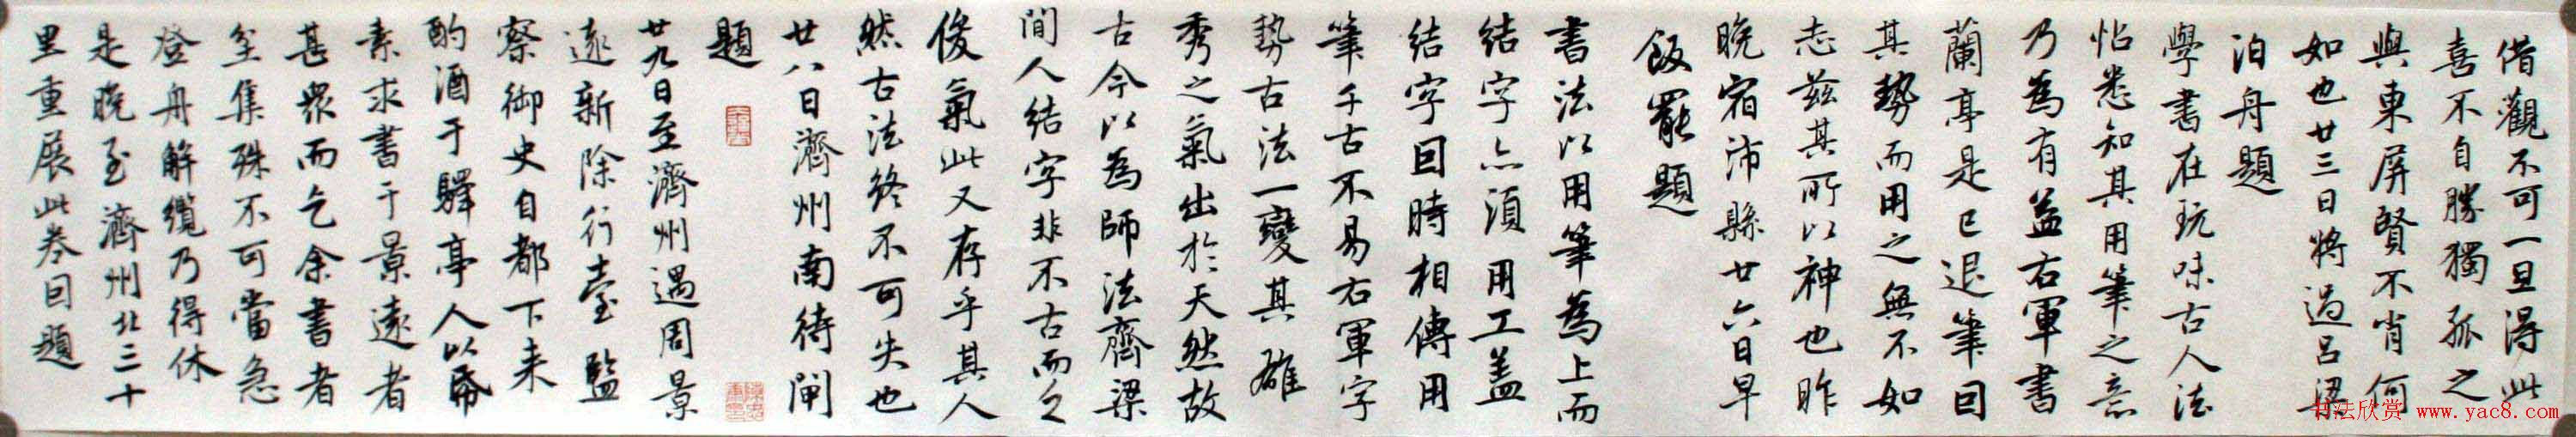 借觀不可一旦得此
喜不自勝獨孤之
與東屏賢不肖何
如也廿三日將過呂梁
泊舟題
學書在玩味古人法
帖悉知其用筆之意
乃為有益右軍書
蘭亭是已退筆因
其勢而用之無不如
志茲其所以神也昨
晚宿沛縣廿六日早
飯罷題
書法以用筆為上而
結字亦須用工盖
結字因時相傳用
筆千古不易右軍字
勢古法一變其雄
秀之氣出於天然故
古今以為師法齊梁
間人結字非不古而乏
俊氣此又存乎其人
然古法終不可失也
廿八日濟州南待閘
題
廿九日至濟州遇周景
遠新除行臺監
察御史自都下来
酌酒于驛亭人以帋
素求書于景遠者
甚衆而乞余書者
坌集殊不可當急
登舟解纜乃得休
是晚至濟州北三十
里重展此卷因題
书法欣赏 www.yac8.com